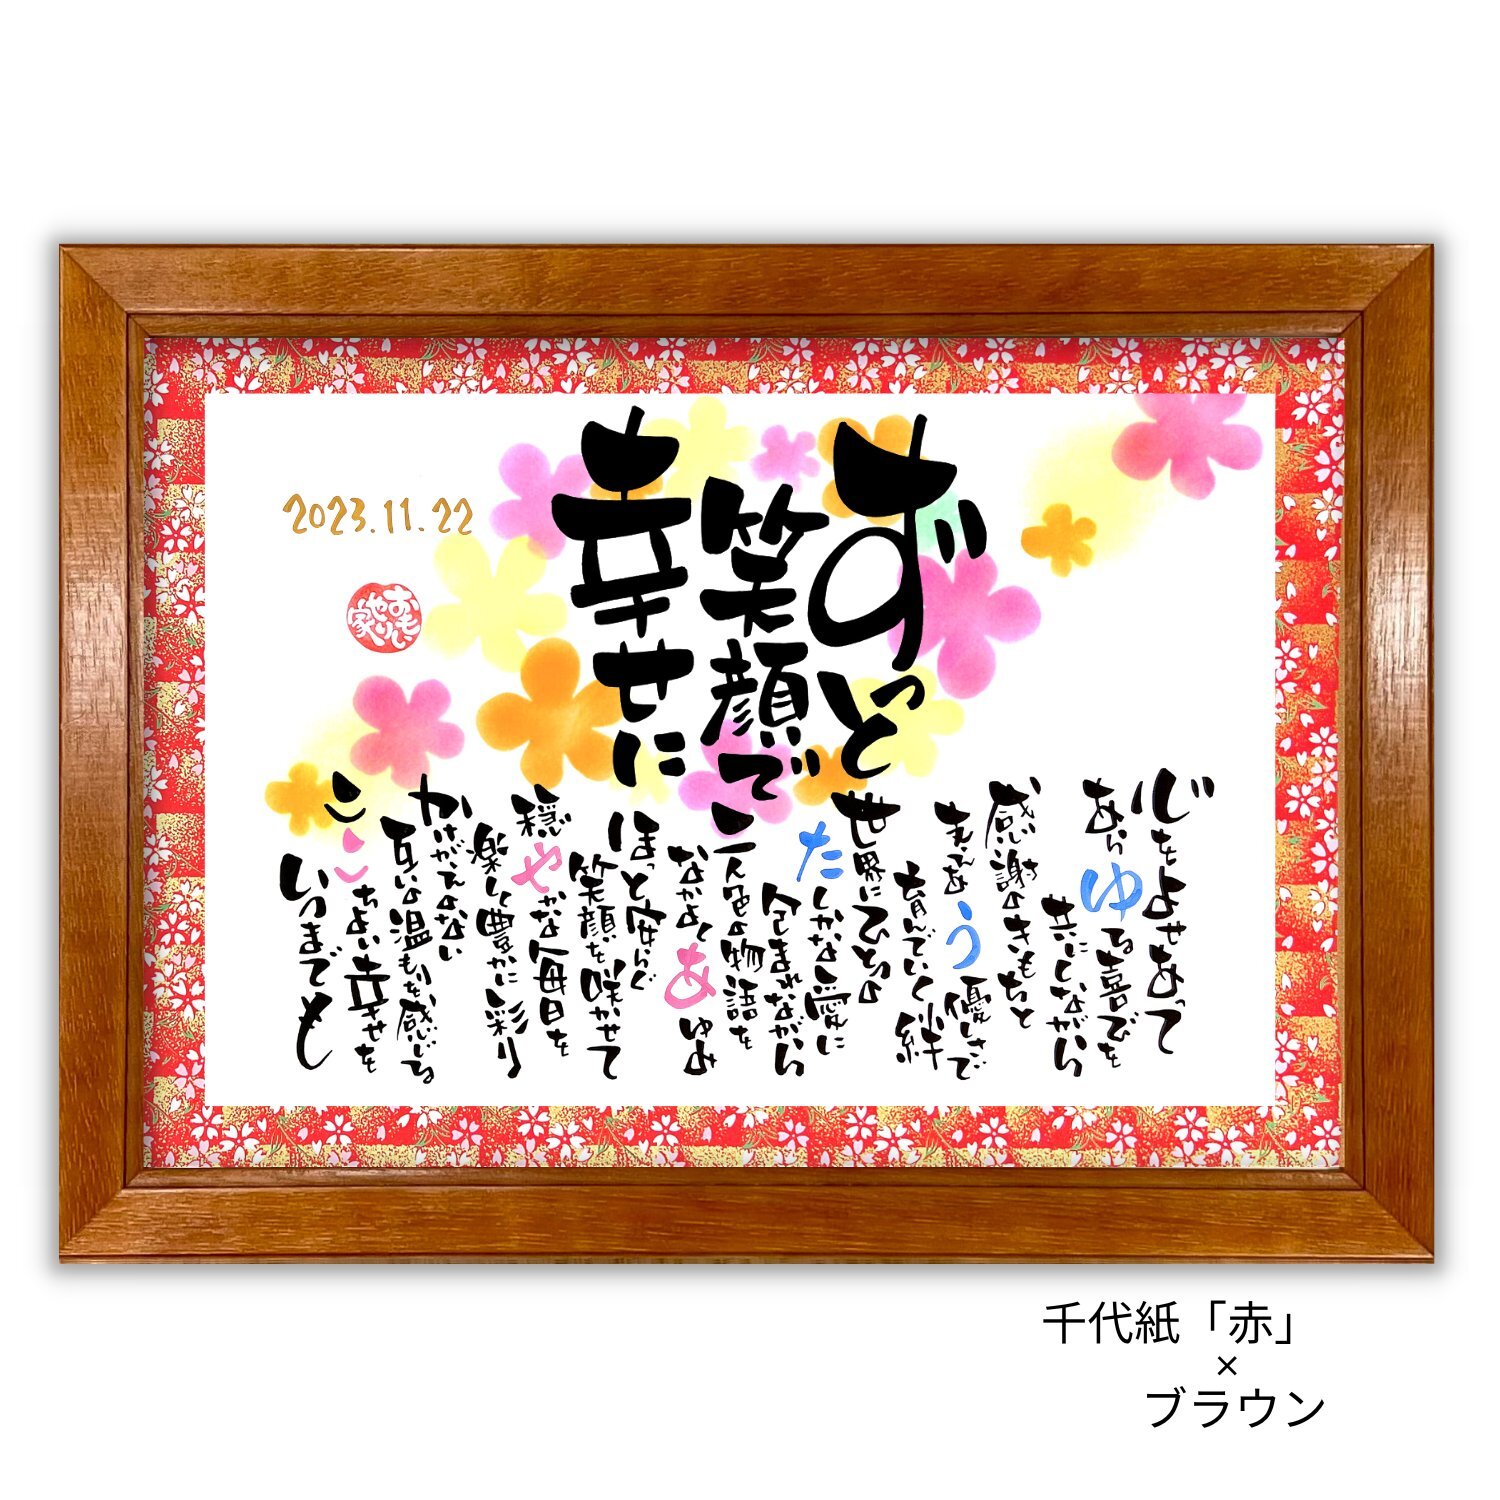 ずっと
笑顔で
幸せに
2023.11.22
おもいやり家
心をよせあって
あらゆる喜びを
共にしながら
感謝のきもちと
まっすぐな
優しさで
育んでいく絆
世界にひとつの
たしかな愛に
包まれながら
二人色の物語を
なかよくあゆみ
ほっと安らぐ
笑顔を咲かせて
穏やかな毎日を
楽しく豊かに彩り
かけがえのない
互いの温もりを感じる
ここちよい幸せを
いつまでも
千代紙「赤」
×
ブラウン